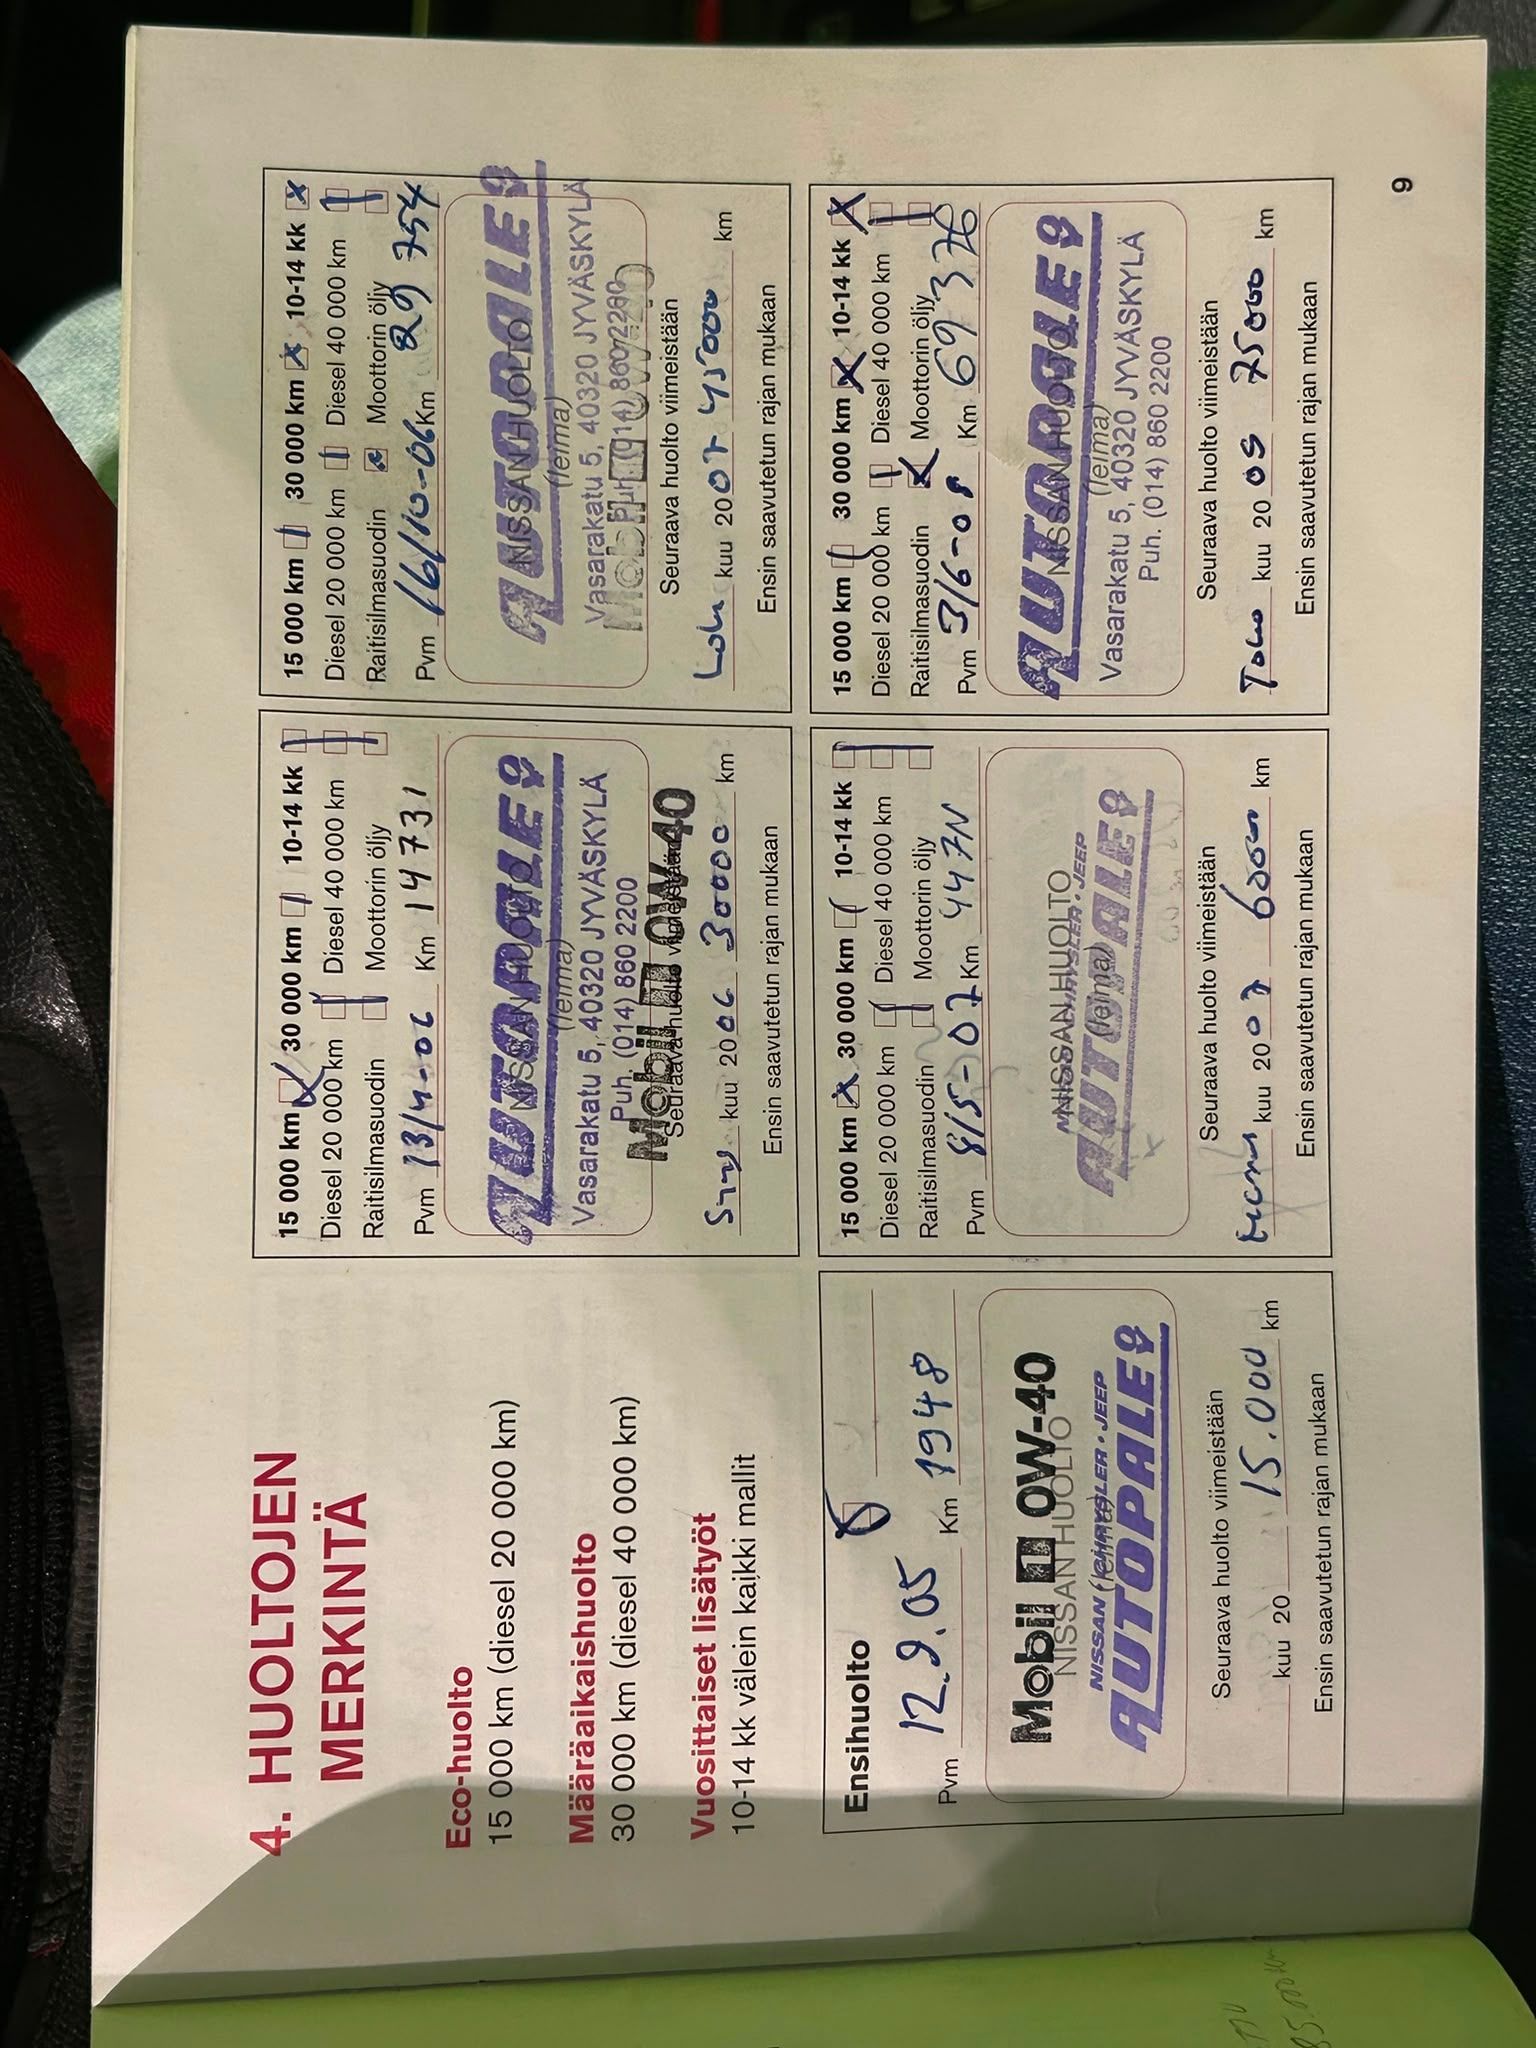 4. HUOLTOJEN
MERKINTÄ
Eco-huolto
15 000 km (diesel 20 000 km)
Määräaikaishuolto
30 000 km (diesel 40 000 km)
Vuosittaiset lisätyöt
10-14 kk välein kaikki mallit
15 000 km 30 000 km 10-14 kk
Diesel 20 000 km Diesel 40 000 km
Raitisilmasuodin Moottorin öljy
Pvm 13/4-06 Km 14731
NISSAN HUOLTO
(leima)
AUTOPALE
Vasarakatu 5, 40320 JYVÄSKYLÄ
Puh. (014) 860 2200
Mobil 1 0W-40
Seuraava huolto viimeistään
kuu 2006 30000 km
Ensin saavutetun rajan mukaan
15 000 km 30 000 km 10-14 kk
Diesel 20 000 km Diesel 40 000 km
Raitisilmasuodin Moottorin öljy
Pvm 16/10-06 Km 29 754
NISSAN HUOLTO
(leima)
AUTOPALE
Vasarakatu 5, 40320 JYVÄSKYLÄ
Puh. (014) 860 2200
Mobil 1 0W-40
Seuraava huolto viimeistään
kuu 2007 45000 km
Ensin saavutetun rajan mukaan
Ensihuolto
Pvm 12.9.05 Km 1948
Mobil 1 0W-40
NISSAN HUOLTO
(leima)
NISSAN · CHRYSLER · JEEP
AUTOPALE
Seuraava huolto viimeistään
kuu 20 15.000 km
Ensin saavutetun rajan mukaan
15 000 km 30 000 km 10-14 kk
Diesel 20 000 km Diesel 40 000 km
Raitisilmasuodin Moottorin öljy
Pvm 8/5-07 Km
NISSAN HUOLTO
(leima)
NISSAN · CHRYSLER · JEEP
AUTOPALE
Seuraava huolto viimeistään
kuu 2007 60000 km
Ensin saavutetun rajan mukaan
15 000 km 30 000 km 10-14 kk
Diesel 20 000 km Diesel 40 000 km
Raitisilmasuodin Moottorin öljy
Pvm 3/6-08 Km 69376
NISSAN HUOLTO
(leima)
AUTOPALE
Vasarakatu 5, 40320 JYVÄSKYLÄ
Puh. (014) 860 2200
Seuraava huolto viimeistään
Touko kuu 2009 75000 km
Ensin saavutetun rajan mukaan
9